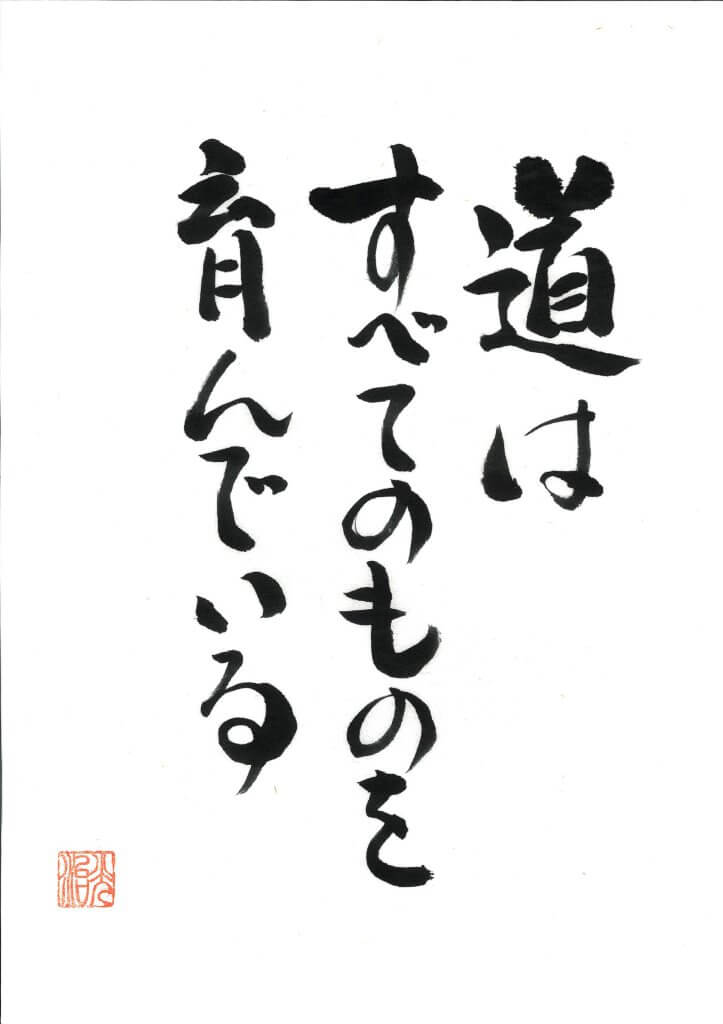 道は
すべてのものを
育んでいる